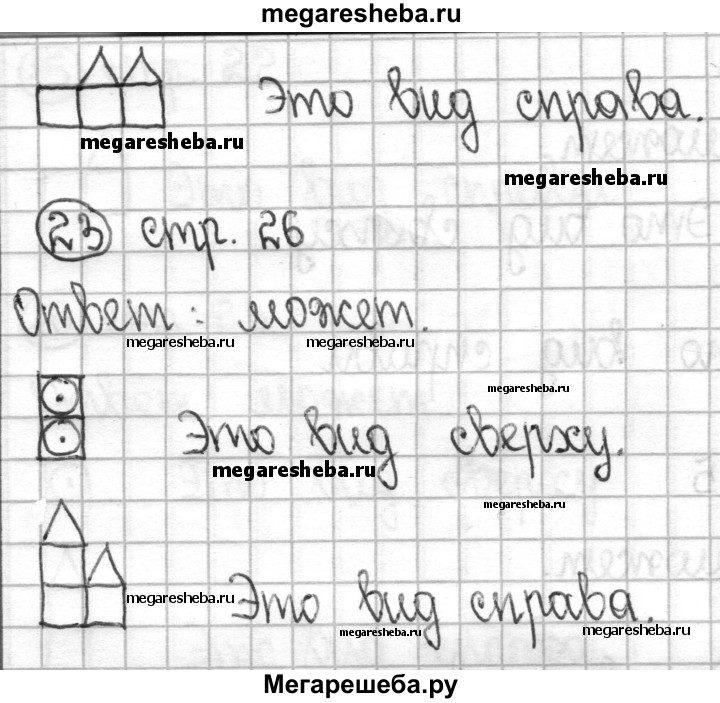 megaresheba.ru
Это вид справа.
megaresheba.ru
megaresheba.ru
23 стр. 26
Ответ: может.
megaresheba.ru megaresheba.ru
megaresheba.ru
Это вид сверху.
megaresheba.ru
megaresheba.ru
megaresheba.ru Это вид справа.
megaresheba.ru megaresheba.ru
Мегарешеба.ру